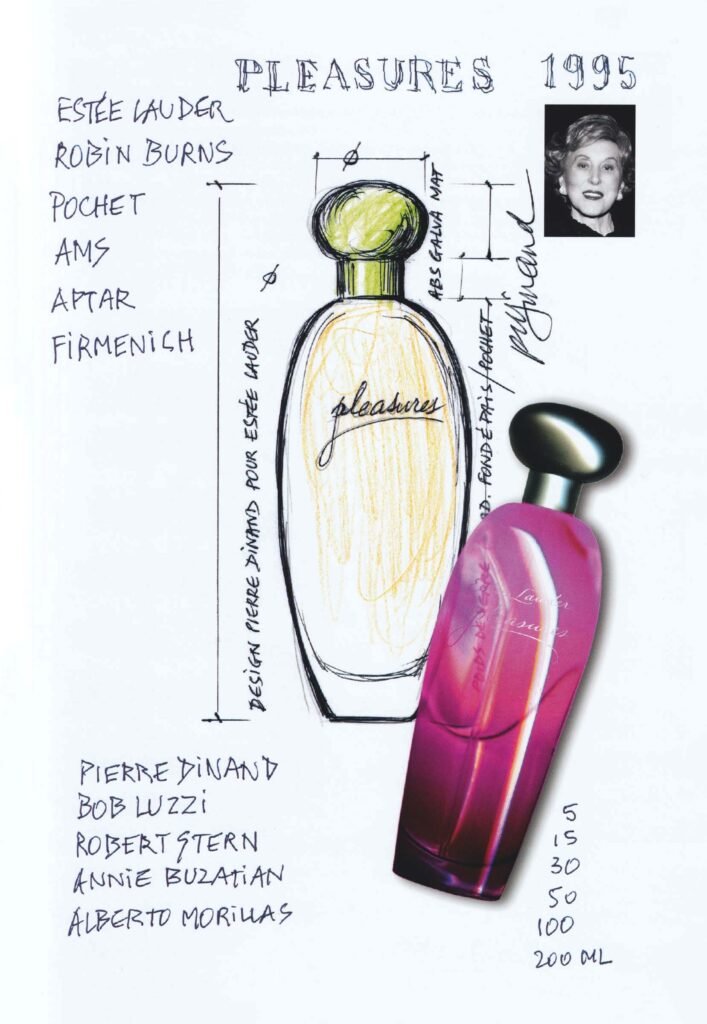 PLEASURES 1995
ESTÉE LAUDER
ROBIN BURNS
POCHET
AMS
APTAR
FIRMENICH
ABS GALVA MAT
DESIGN PIERRE DINAND POUR ESTÉE LAUDER
FOND ÉPAIS/POCHET
pleasures
Lauder
pleasures
PIERRE DINAND
BOB LUZZI
ROBERT STERN
ANNIE BUZATIAN
ALBERTO MORILLAS
5
15
30
50
100
200 ML